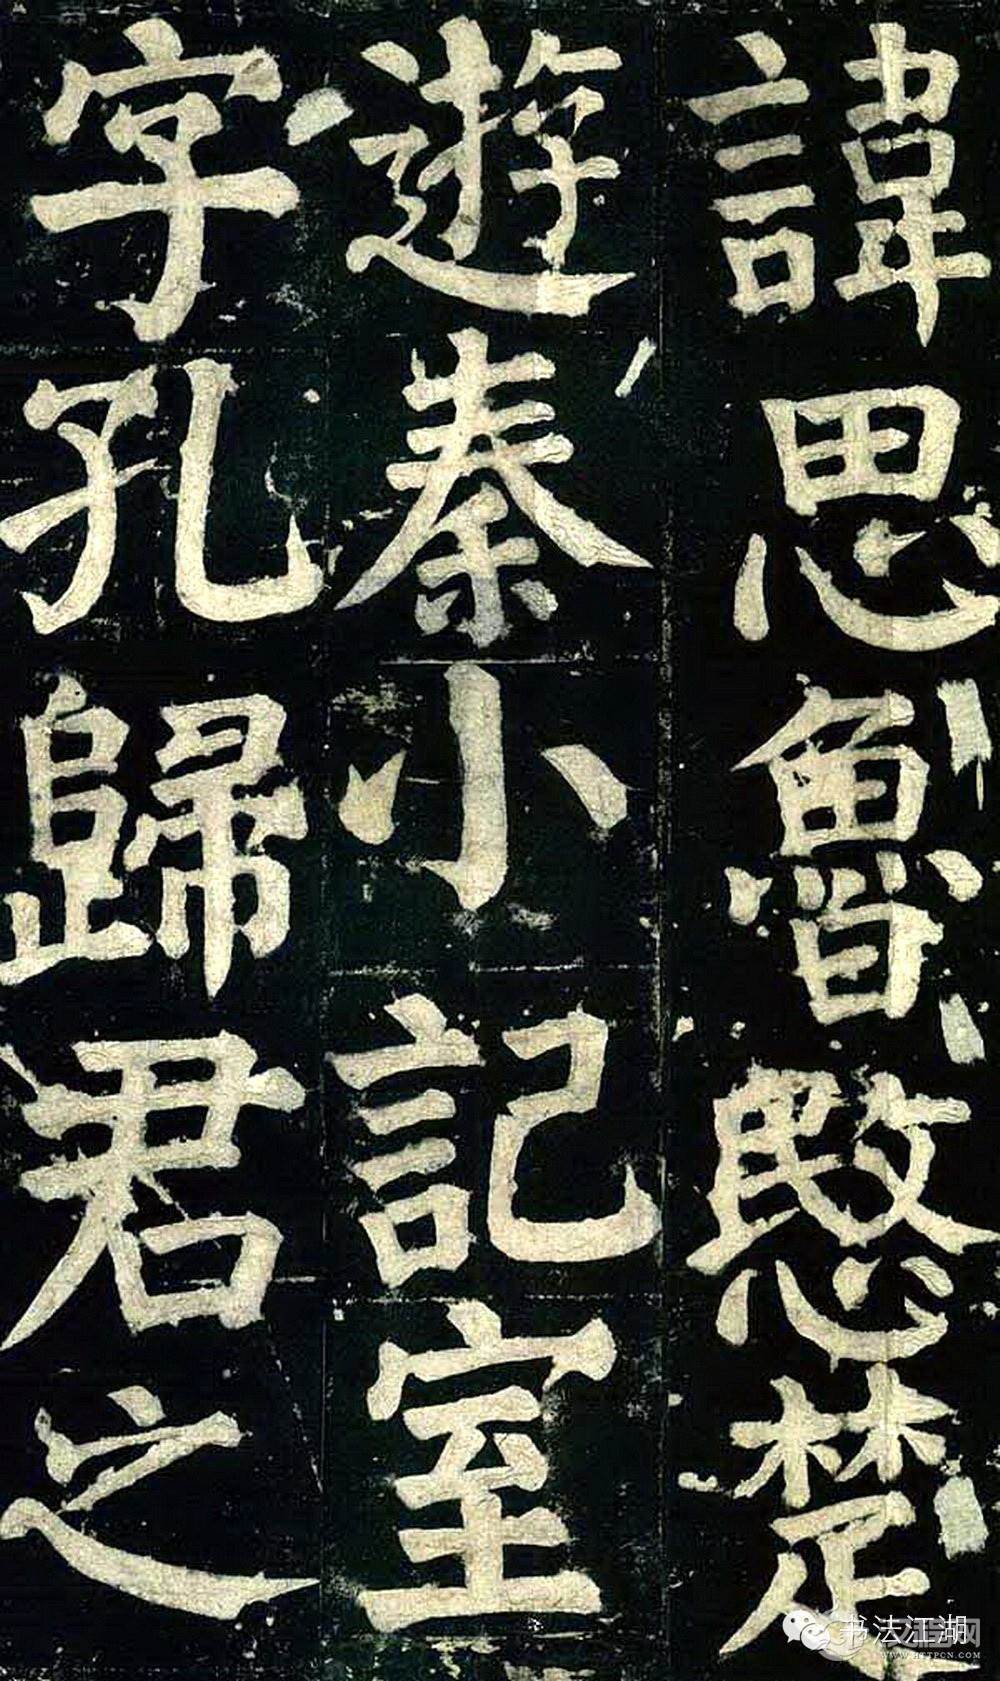 諱思魯愍楚
遊秦小記室
字孔歸君之
书法江湖
WWW.HTTPCN.COM